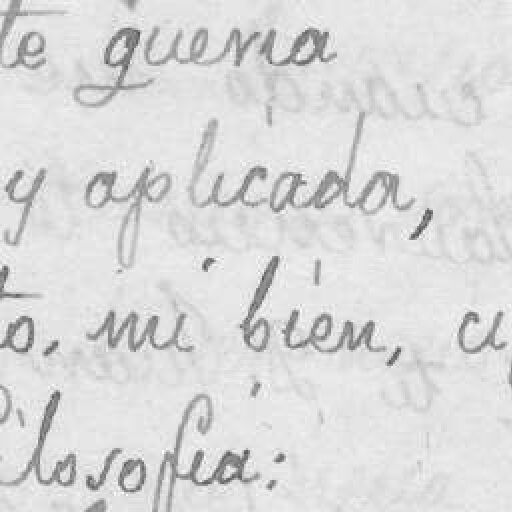 te queria
y aplicada,
to. mi bien,
filosofia: